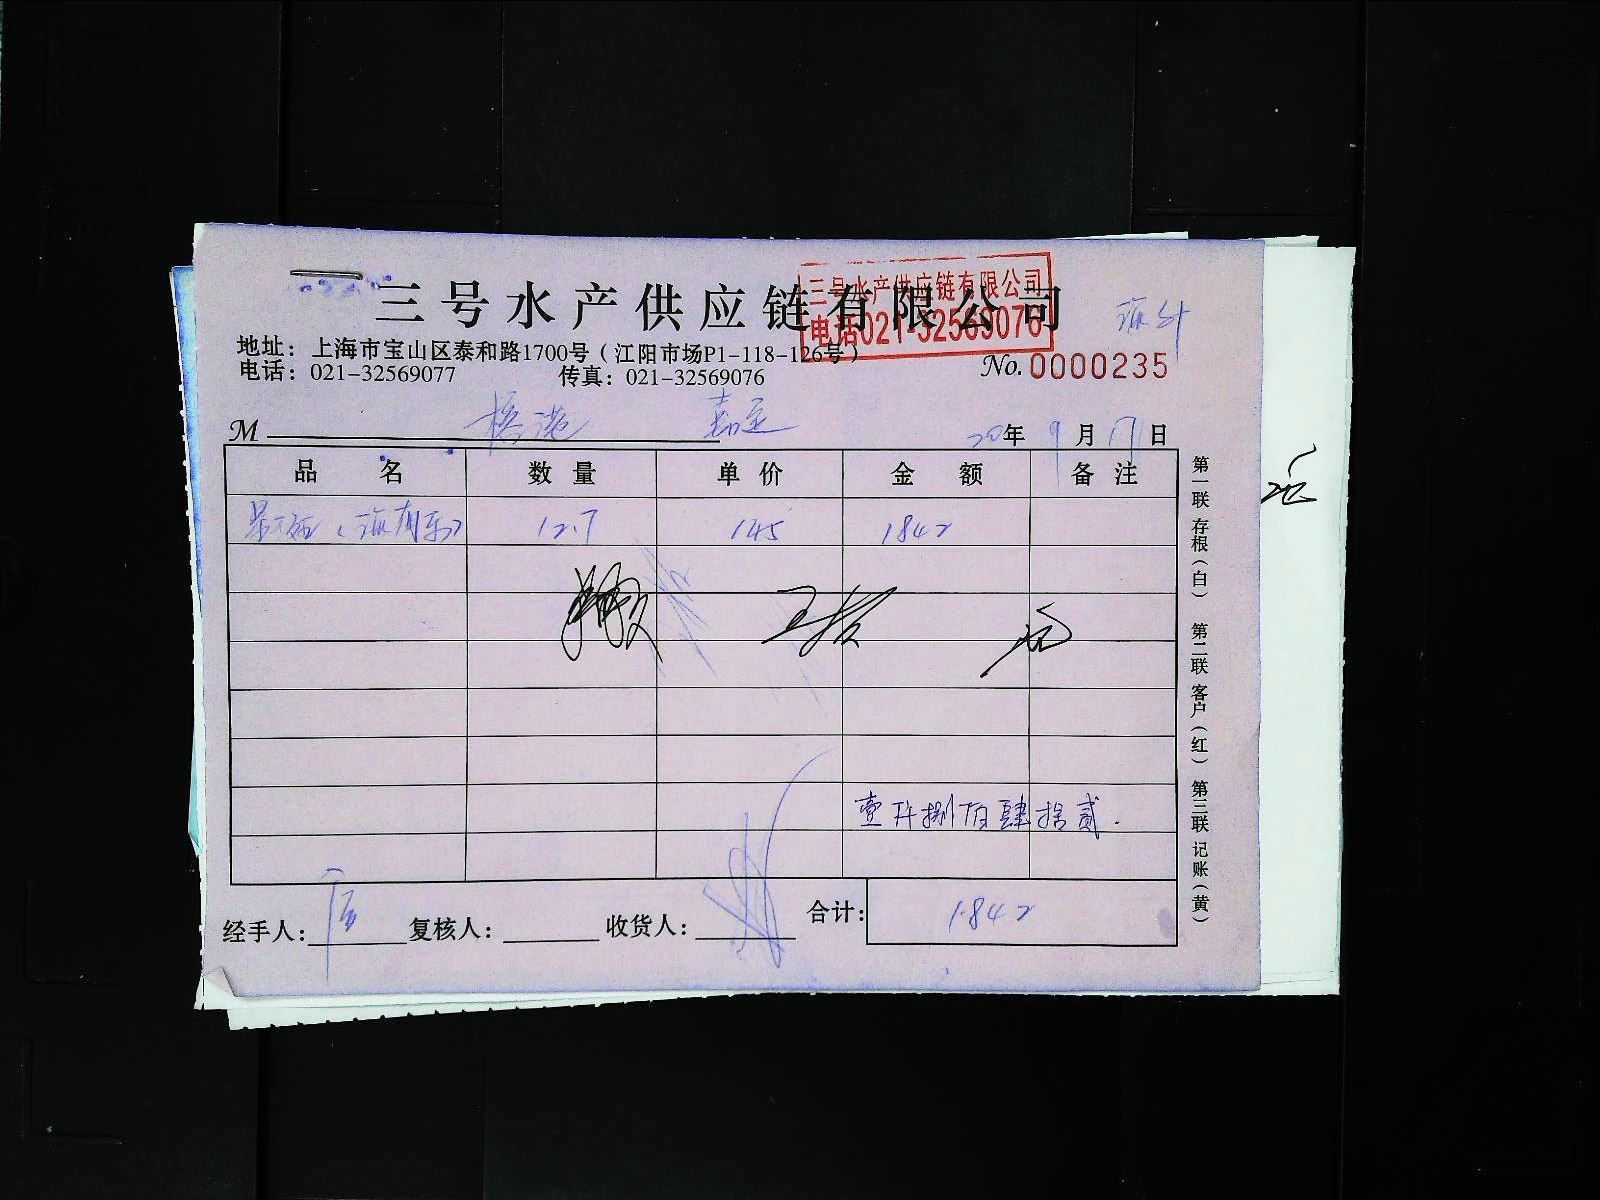 三号水产供应链有限公司
三号水产供应链有限公司
电话021-32569076
地址：上海市宝山区泰和路1700号（江阳市场P1-118-126号）
电话：021-32569077 传真：021-32569076
No.0000235
M 嘉定 20年9月17日
品名 数量 单价 金额 备注
12.7 145 1842
壹仟捌佰肆拾贰.
经手人： 复核人： 收货人： 合计：1842
第一联 存根（白） 第二联 客户（红） 第三联 记账（黄）